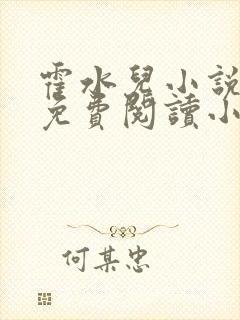 霍水兒小説
免費閱讀小
何某忠